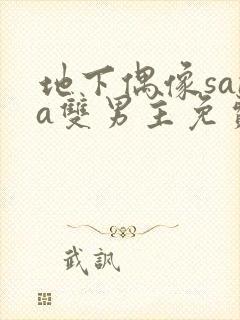 地下偶像sa
a雙男主免
武訊